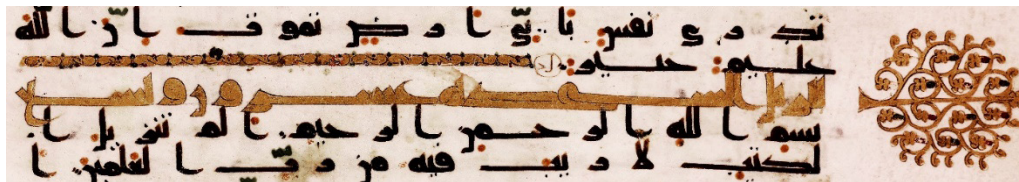 تدري نفس باي ارض تموت ان الله
عليم خبير
السجده عشرون وتسع
بسم الله الرحمن الرحيم الم تنزيل ا
لكتب لا ريب فيه من رب العلمين ا